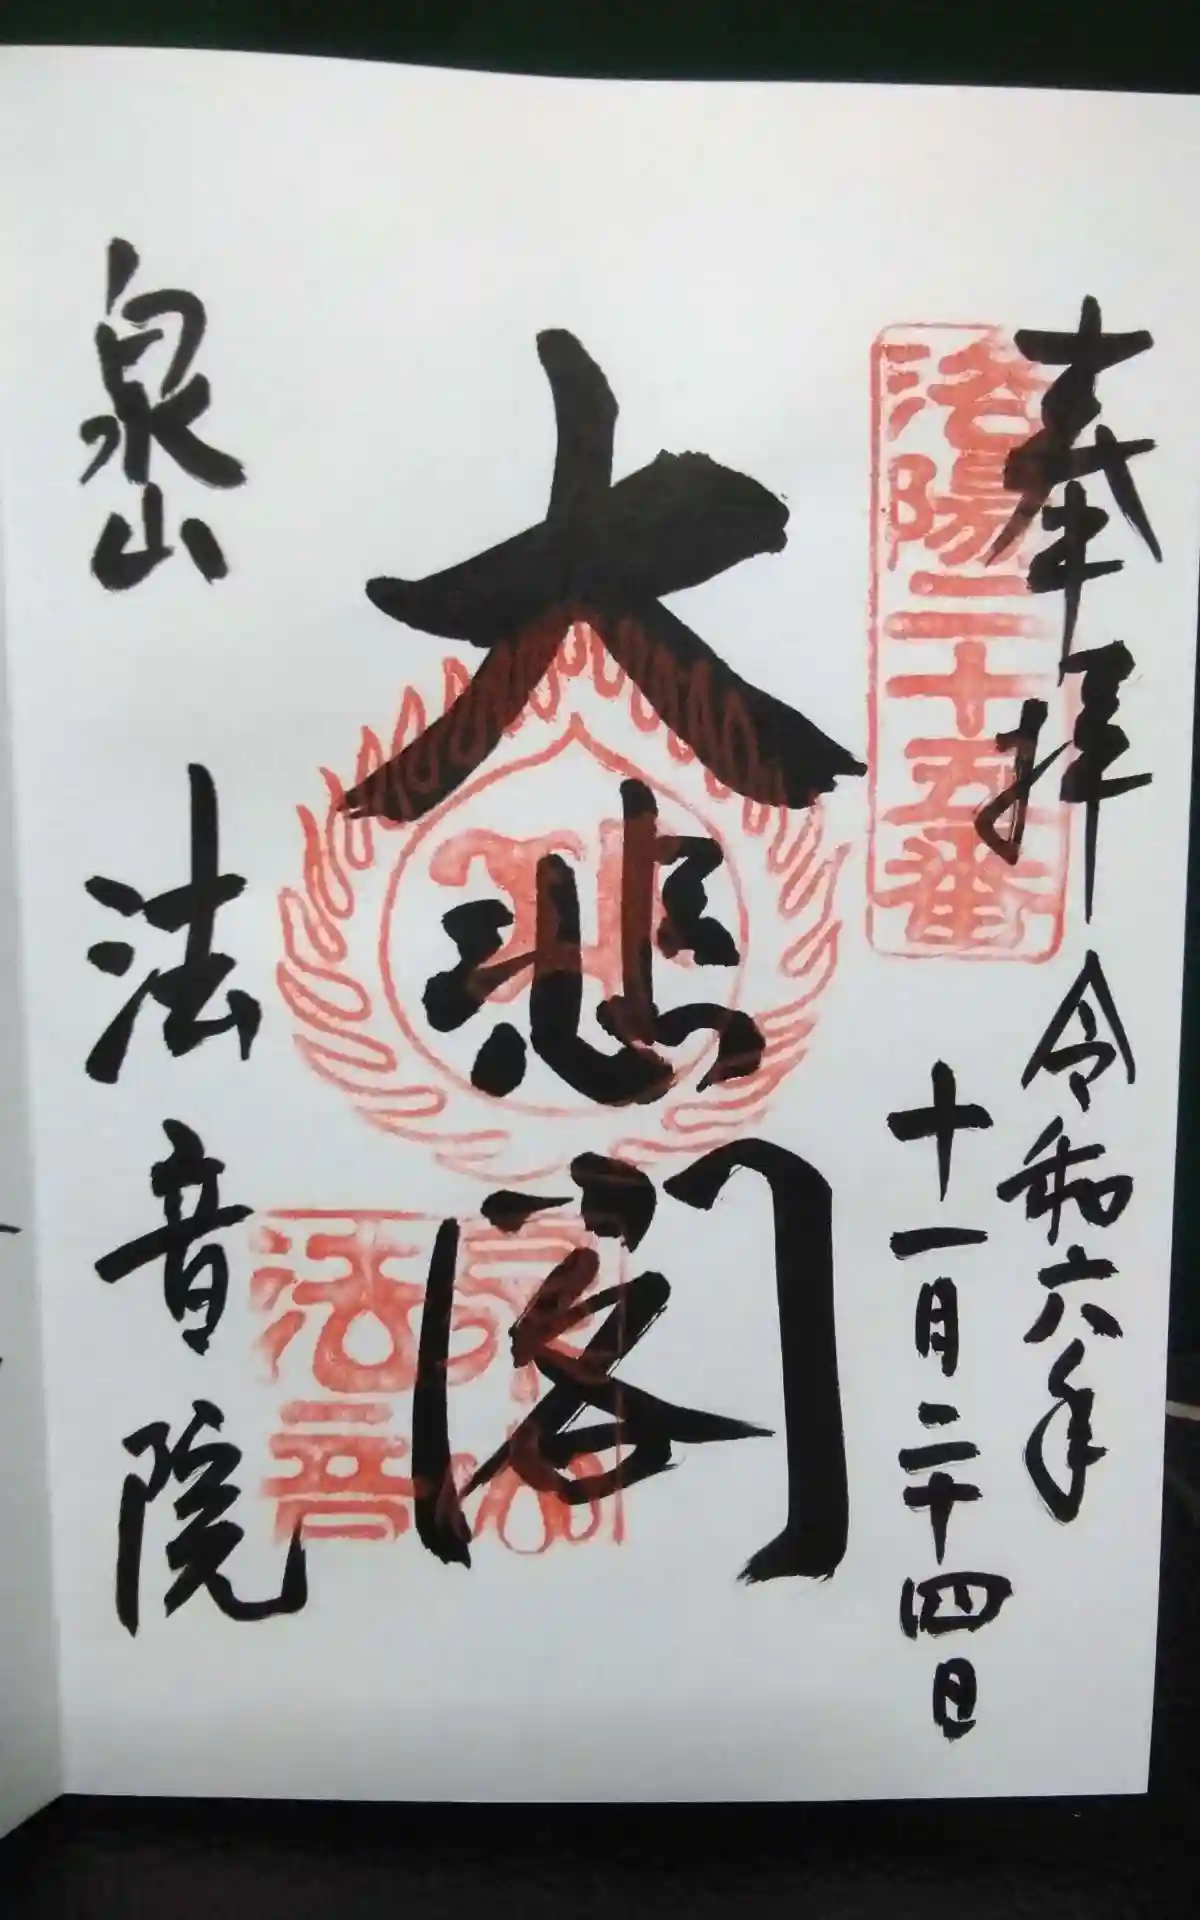 奉拝
令和六年
十一月二十四日
洛陽二十五番
大悲閣
泉山
法音院
法音